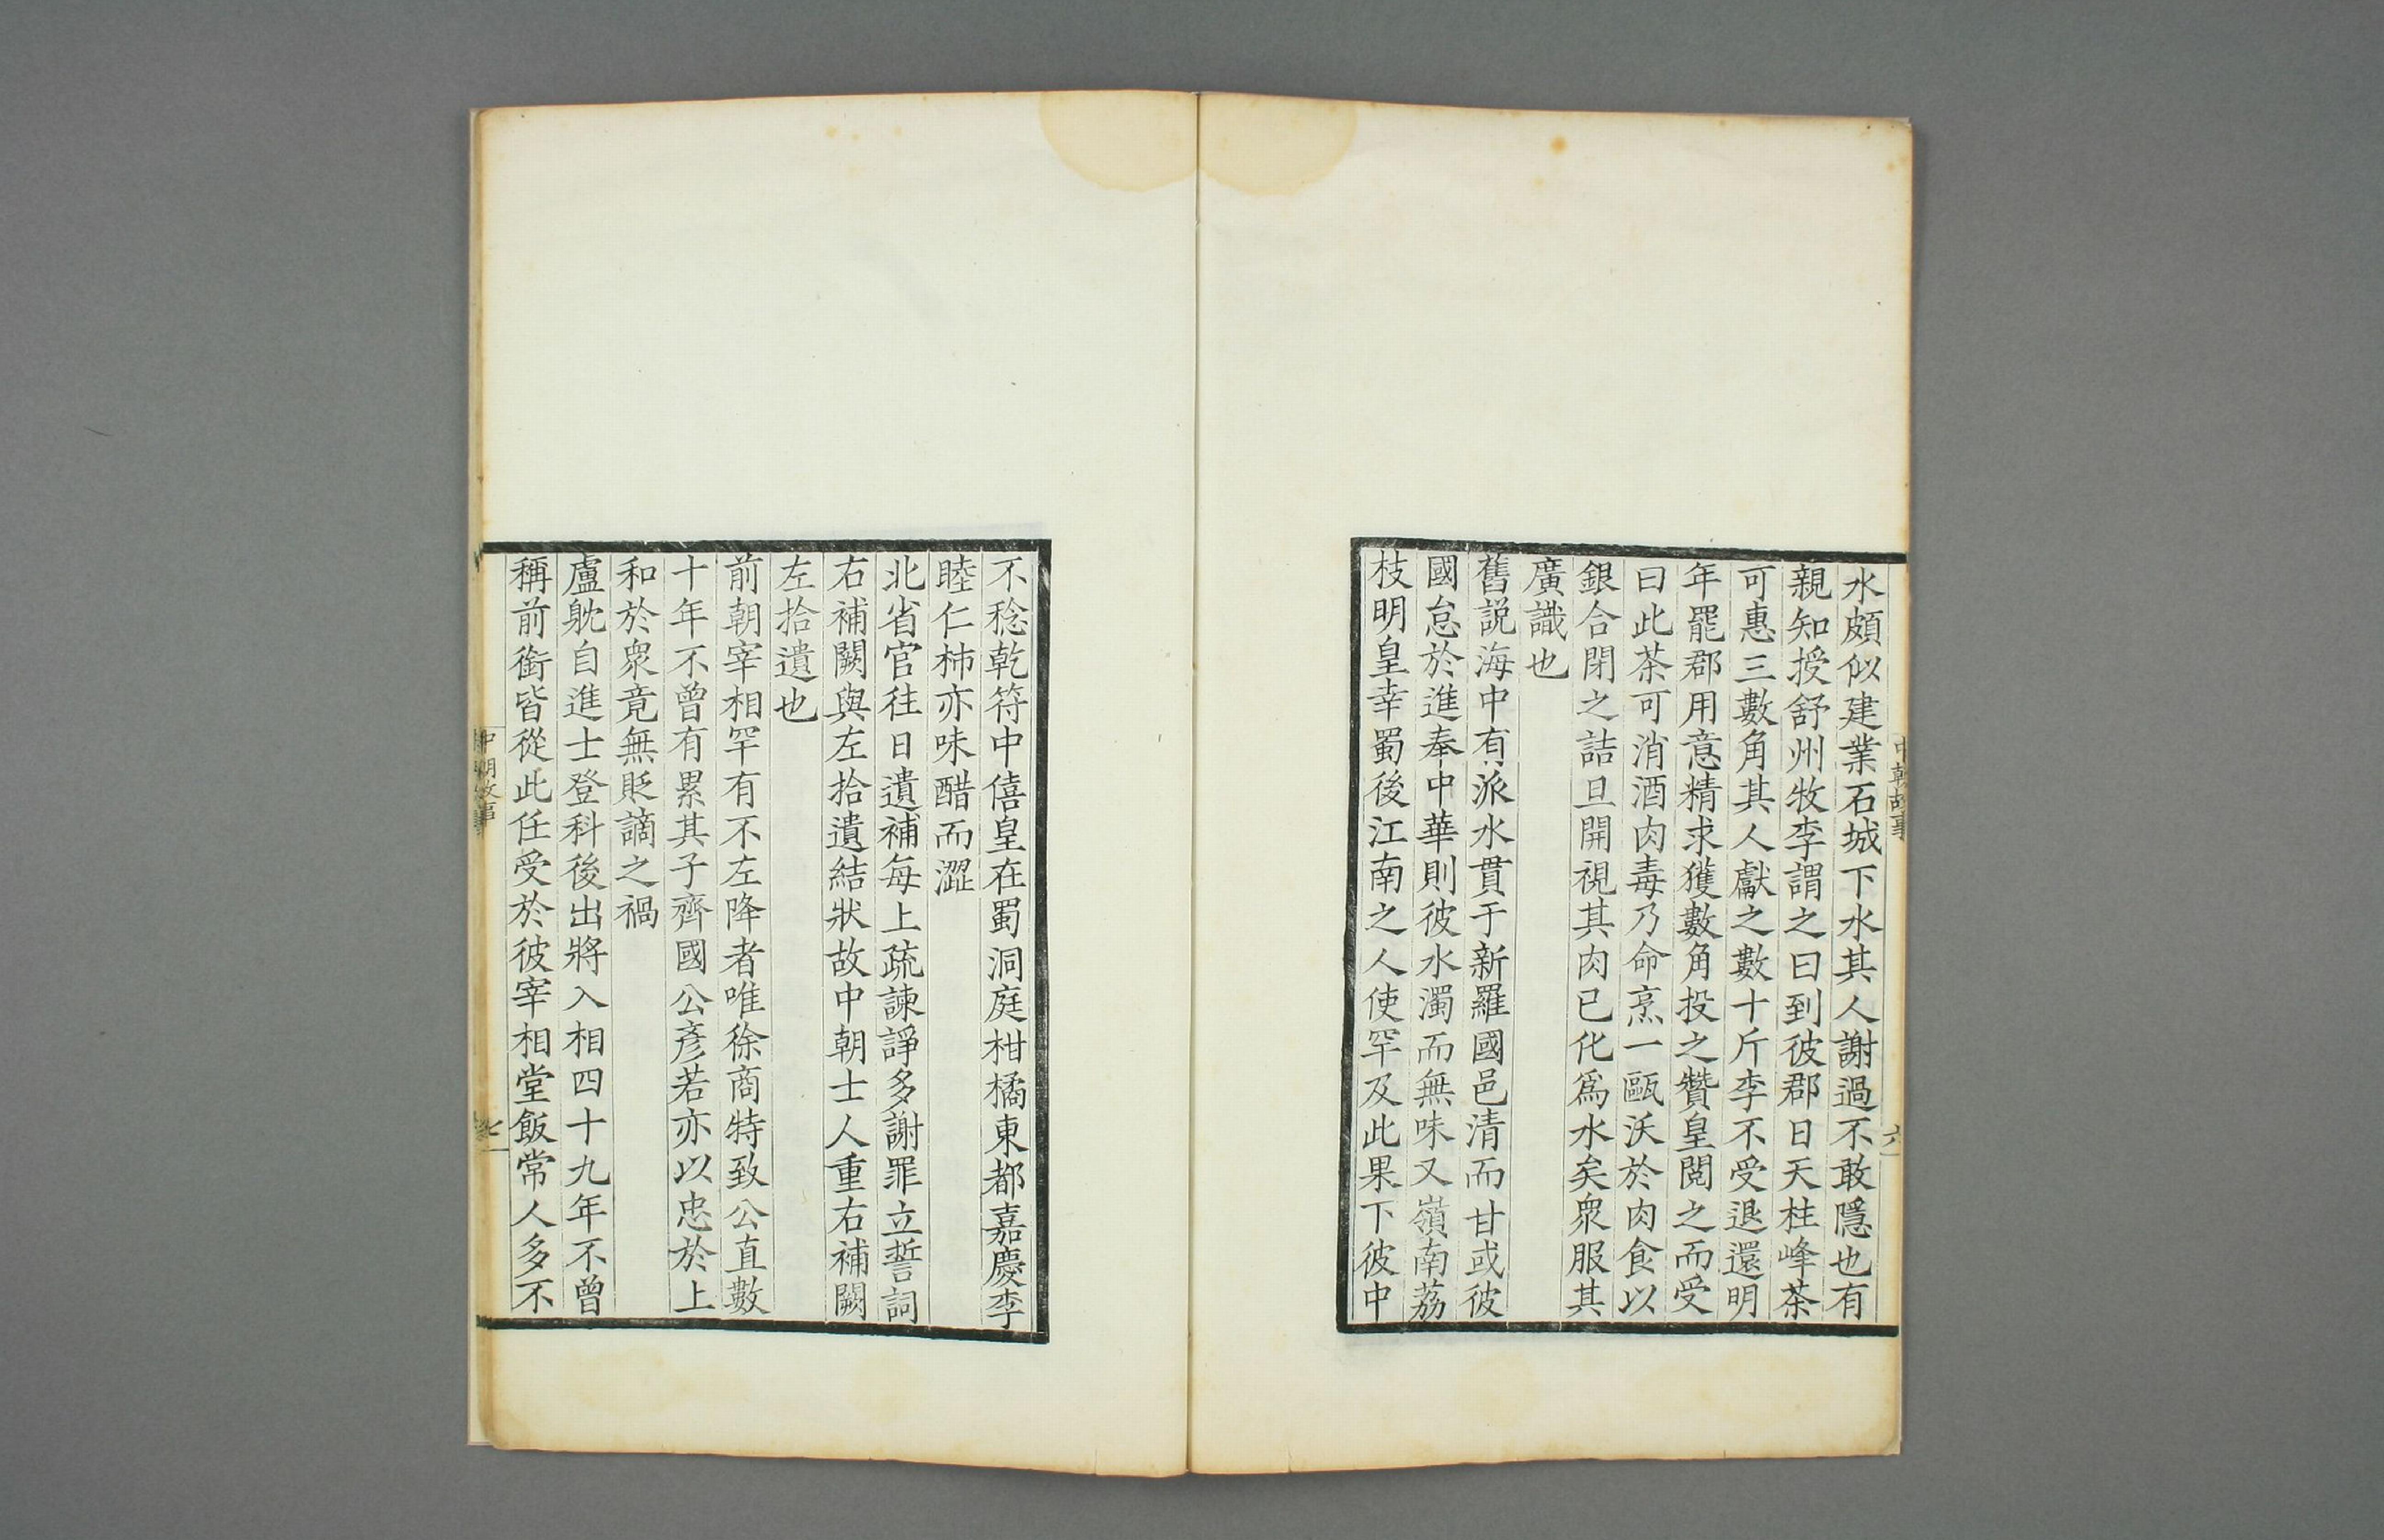 水頗似建業石城下水其人謝過不敢隱也有
親知授舒州牧李謂之曰到彼郡日天柱峰茶
可惠三數角其人獻之數十斤李不受退還明
年罷郡用意精求獲數角投之贊皇閱之而受
曰此茶可消酒肉毒乃命烹一甌沃於肉食以
銀合閉之詰旦開視其肉已化爲水矣衆服其
廣識也
舊説海中有派水貫于新羅國邑清而甘或彼
國怠於進奉中華則彼水濁而無味又嶺南荔
枝明皇幸蜀後江南之人使罕及此果下彼中
中朝故事
六
不稔乾符中僖皇在蜀洞庭柑橘東都嘉慶李
睦仁柿亦味醋而澀
北省官往日遺補每上疏諫諍多謝罪立誓詞
右補闕與左拾遺結狀故中朝士人重右補闕
左拾遺也
前朝宰相罕有不左降者唯徐商特致公直數
十年不曾有累其子齊國公彥若亦以忠於上
和於衆竟無貶謫之禍
盧躭自進士登科後出將入相四十九年不曾
稱前銜皆從此任受於彼宰相堂飯常人多不
中朝故事
七